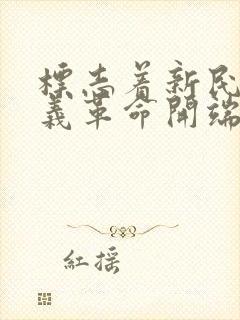 標志着新民
義革命開端
紅摇